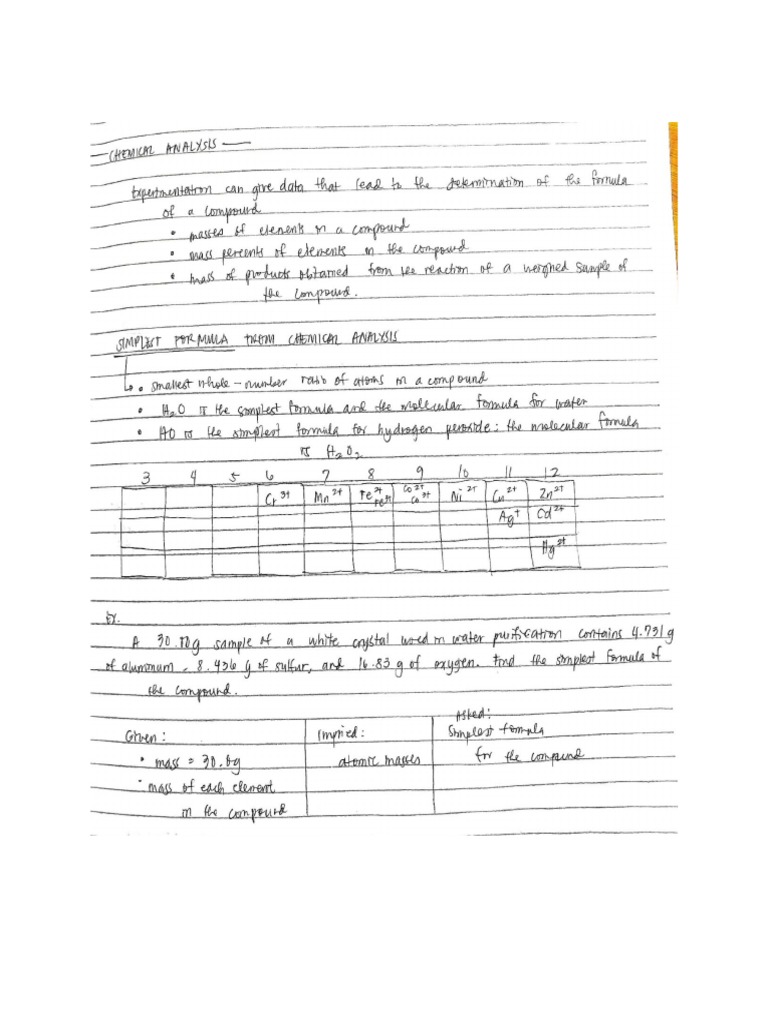 — CHEMICAL ANALYSIS —
Experimentation can give data that lead to the determination of the formula
of a compound
• masses of elements in a compound
• mass percents of elements in the compound
• mass of products obtained from the reaction of a weighed sample of
the compound.
SIMPLEST FORMULA FROM CHEMICAL ANALYSIS
• smallest whole-number ratio of atoms in a compound
• H2O is the simplest formula and the molecular formula for water
• HO is the simplest formula for hydrogen peroxide; the molecular formula
is H2O2
3 4 5 6 7 8 9 10 11 12
Cr3+ Mn2+ Fe2+ Fe3+ Co2+ Co3+ Ni2+ Cu2+ Zn2+
Ag+ Cd2+
Hg2+
Ex.
A g sample of a white crystal used in water purification contains 4.731g
of aluminum, 8.436 g of sulfur, and 16.83 g of oxygen. Find the simplest formula of
the compound.
Given: Implied: Asked:
• mass = 30.0g atomic masses Simplest formula
• mass of each element for the compound
in the compound